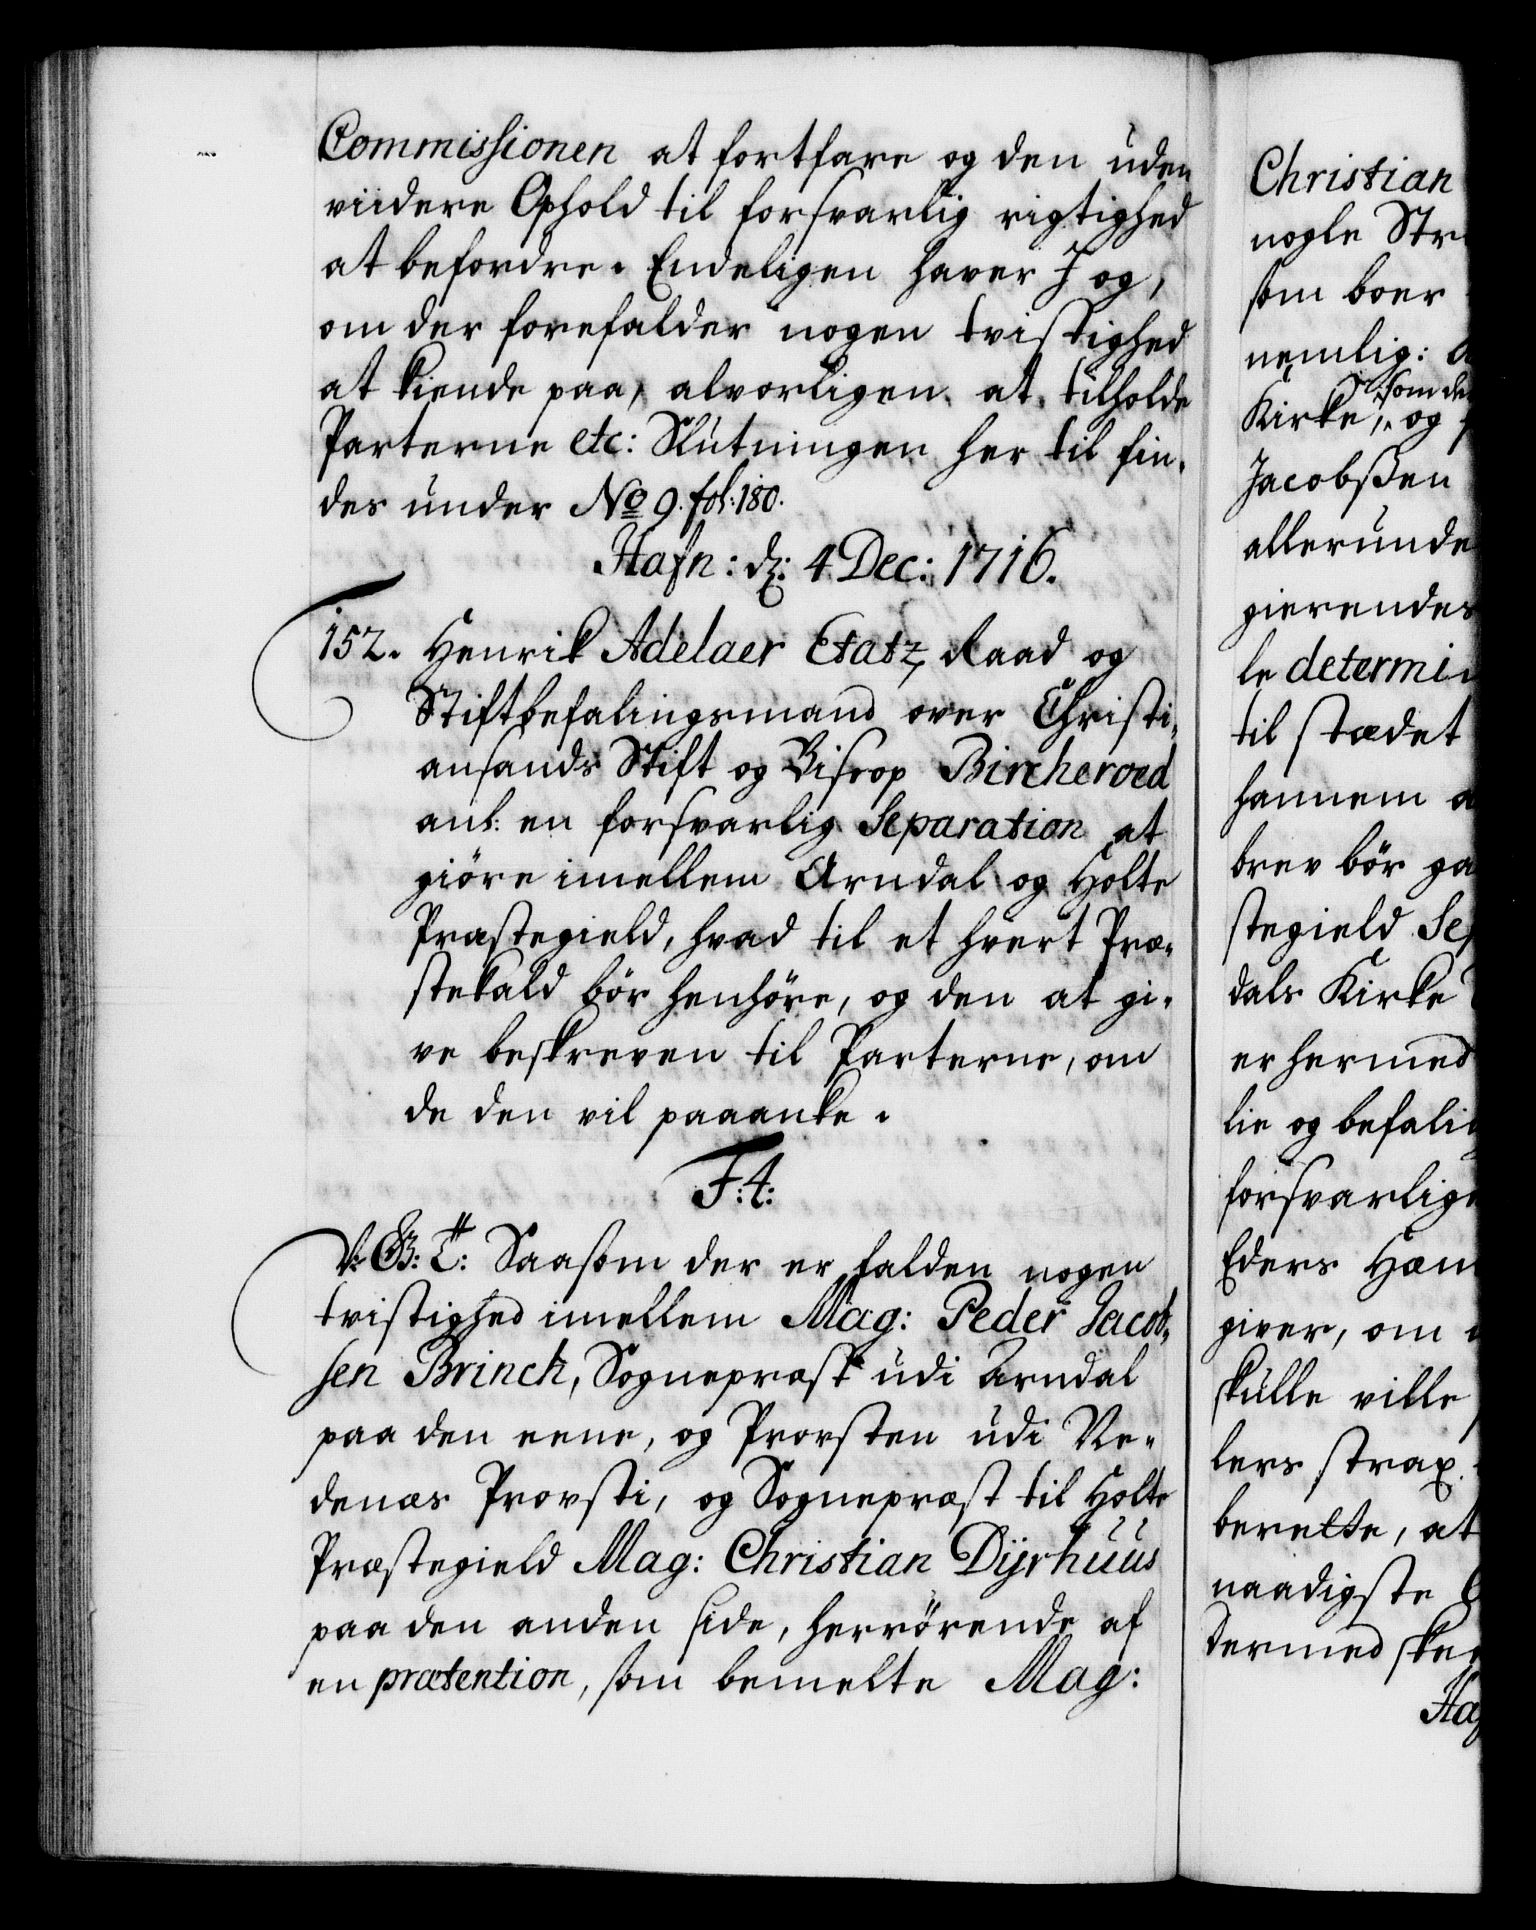 Commissionen at fortfare og den uden
viidere Ophold til forsvarlig rigtighed
at befordre. Endeligen haver J og,
om der forefalder nogen tvistighed
at kiende paa, alvorligen at tilholde
Parterne etc: Slutningen her til fin-
des under No 9. fol: 180.
Hafn: d: 4 Dec: 1716.
152. Henrik Adelaer Etatz Raad og
Stiftbefalingsmand over Christi-
ansands Stift og Biscop Bircheroed
anl: en forsvarlig Separation at
giöre imellem Arndal og Holte
Præstegield, hvad til et hvert Præ-
stekald bör henhöre, og den at gi-
ve beskreven til Parterne, om
de den vil paaanke.
F: 4:
V: G: T: Saasom der er falden nogen
tvistighed imellem Mag: Peder Jacob-
sen Brinch, Sognepræst udi Arndal
paa den eene, og Provsten udi Ne-
denæs Provsti, og Sognepræst til Holte
Præstegield Mag: Christian Dijrhuus
paa den anden side, herrörende af
en prætention, som bemelte Mag:
Christian
nogle Str
som boer
nemlig:
som de
Kirke, og
Jacobßen
allerunde
gierendes
le determi
til stædet
hannem a
brev bör ga
stegield Sep
dals Kirke
er hermed
lie og befali
forsvarlig
Eders Hæn
giver, om
skulle ville
lers strax
berette, at
naadigste
dermed ske
Haf